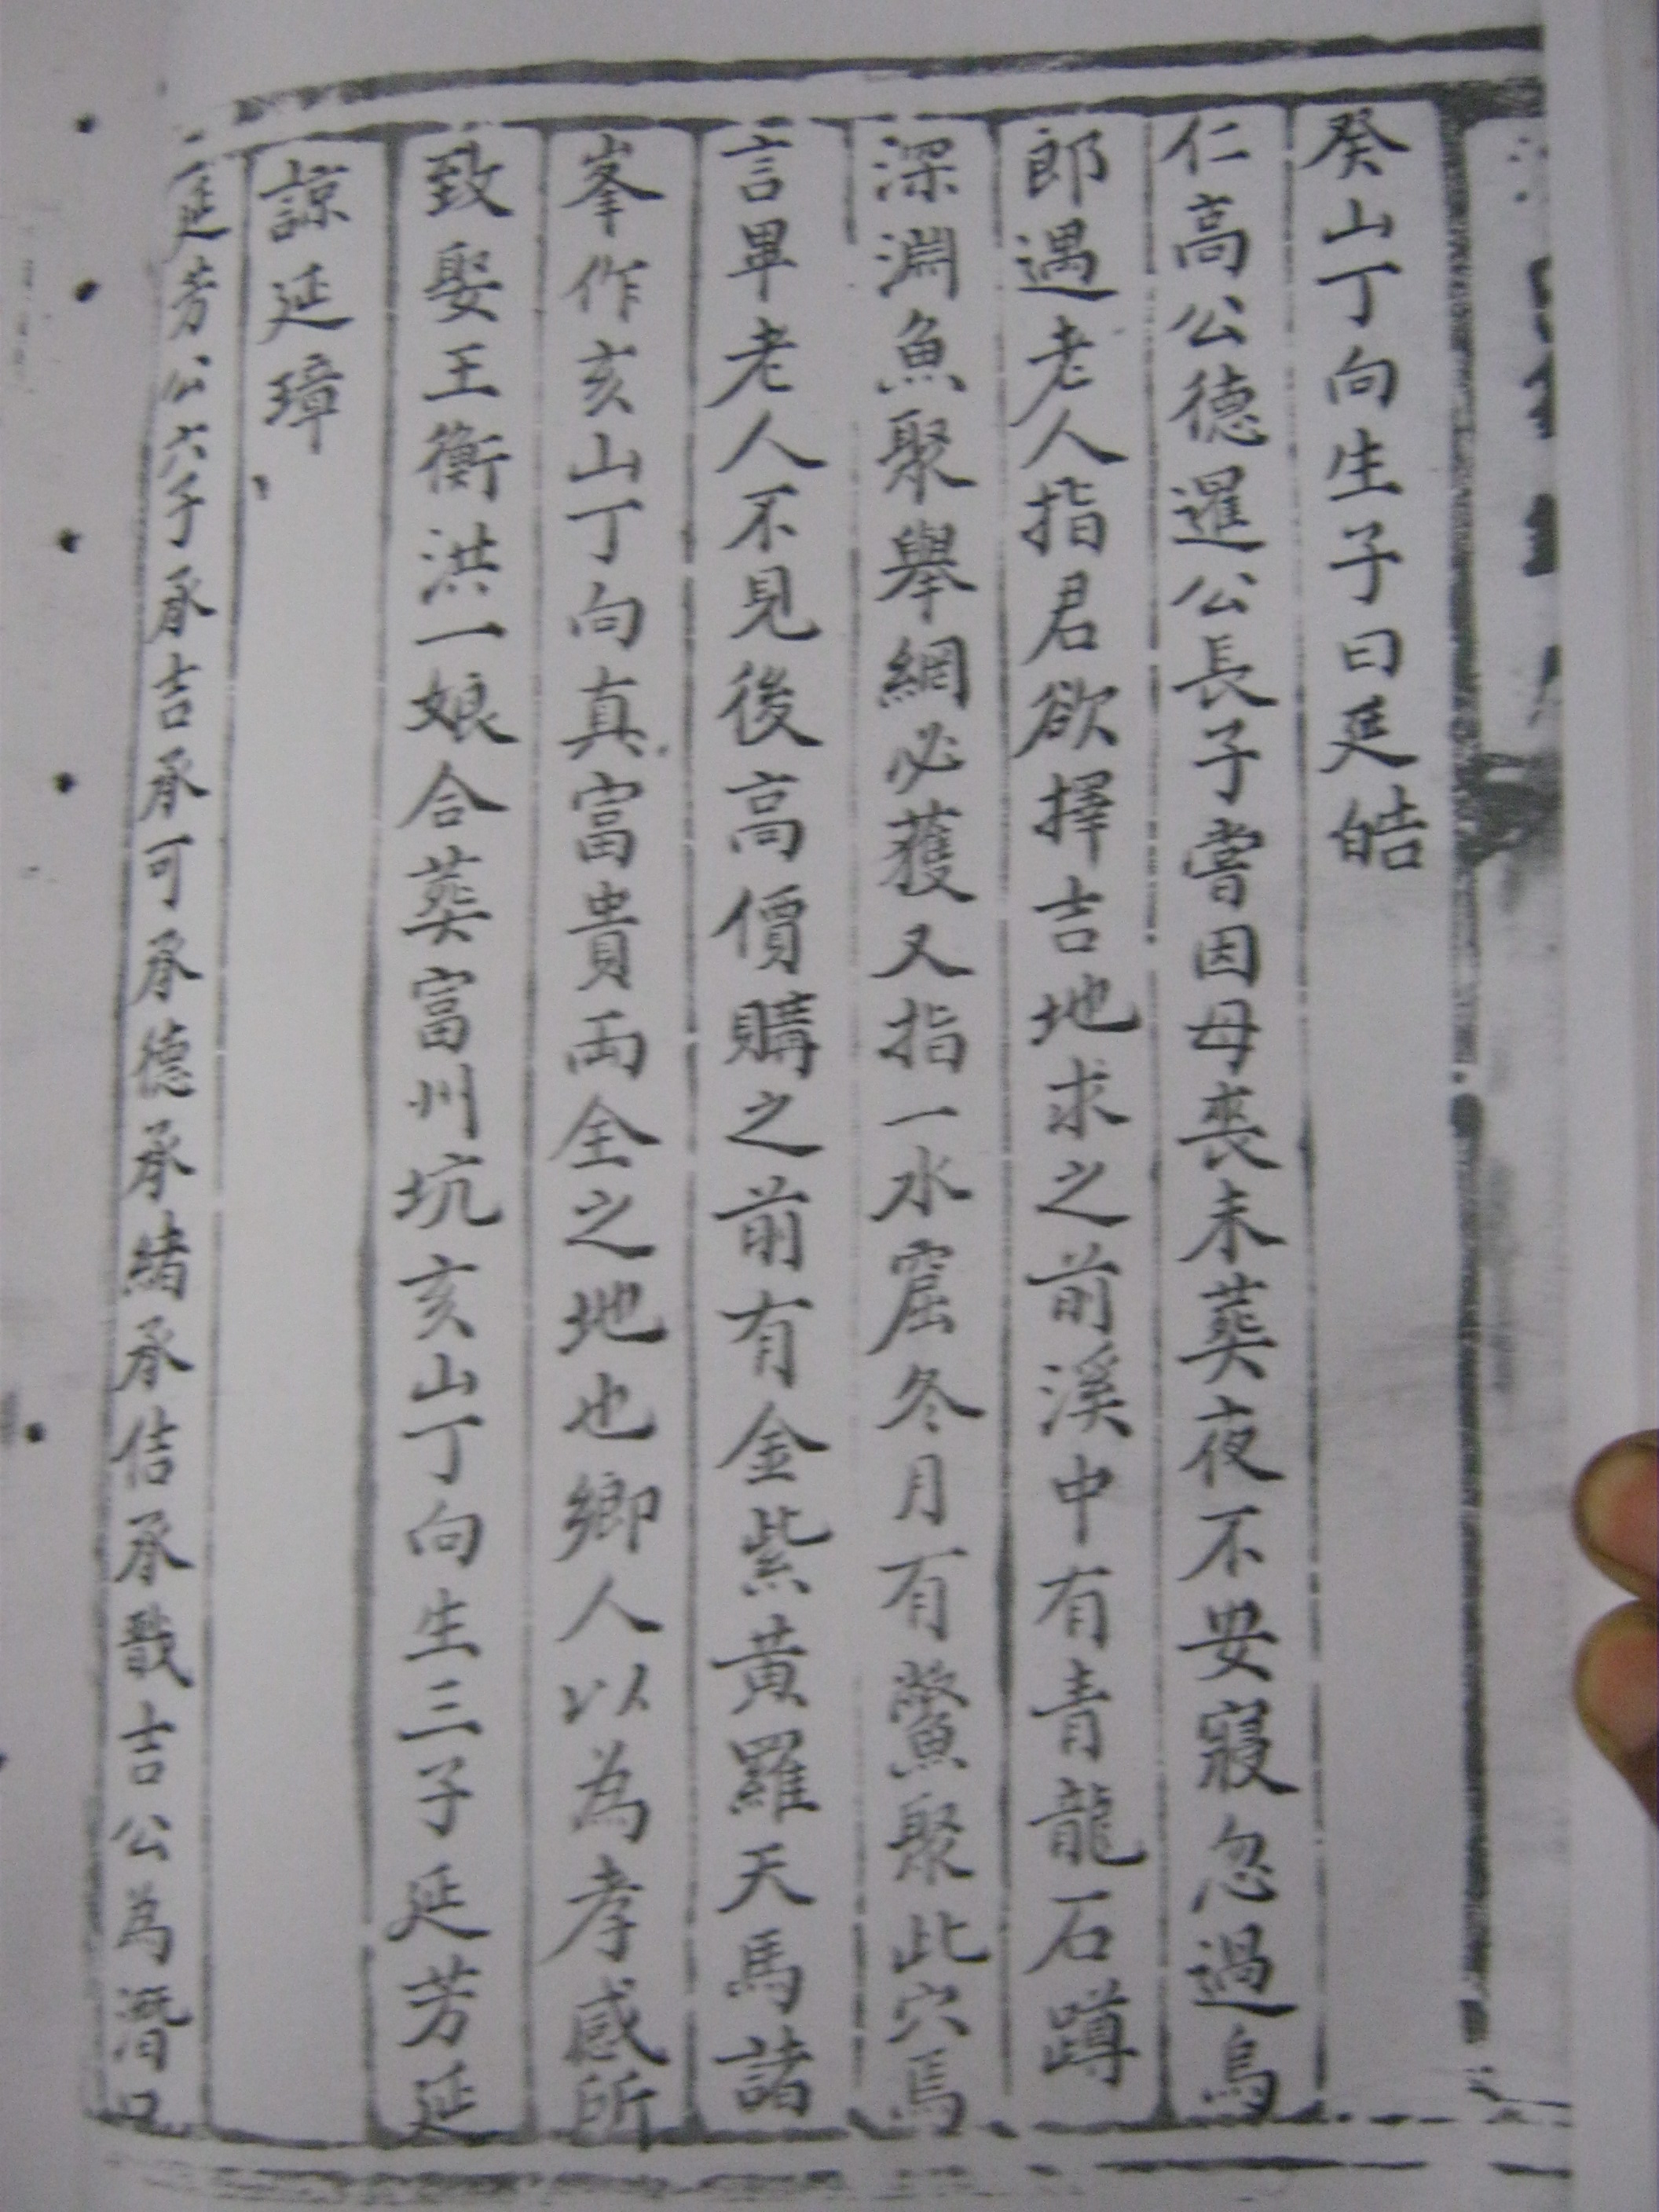 癸山丁向生子曰廷皓
仁高公德暹公長子嘗因母喪未葬夜不安寢忽過烏
郎遇老人指君欲擇吉地求之前溪中有青龍石蹲
深淵魚聚舉網必獲又指一水窟冬月有鱉聚此穴焉
言畢老人不見後高價購之前有金紫黃羅天馬諸
峯作亥山丁向真富貴両全之地也鄉人以為孝感所
致娶王衡洪一娘合葬富州坑亥山丁向生三子延芳延
諒延璋
延芳公六子承吉承可承德承緒承信承戩吉公為潛口